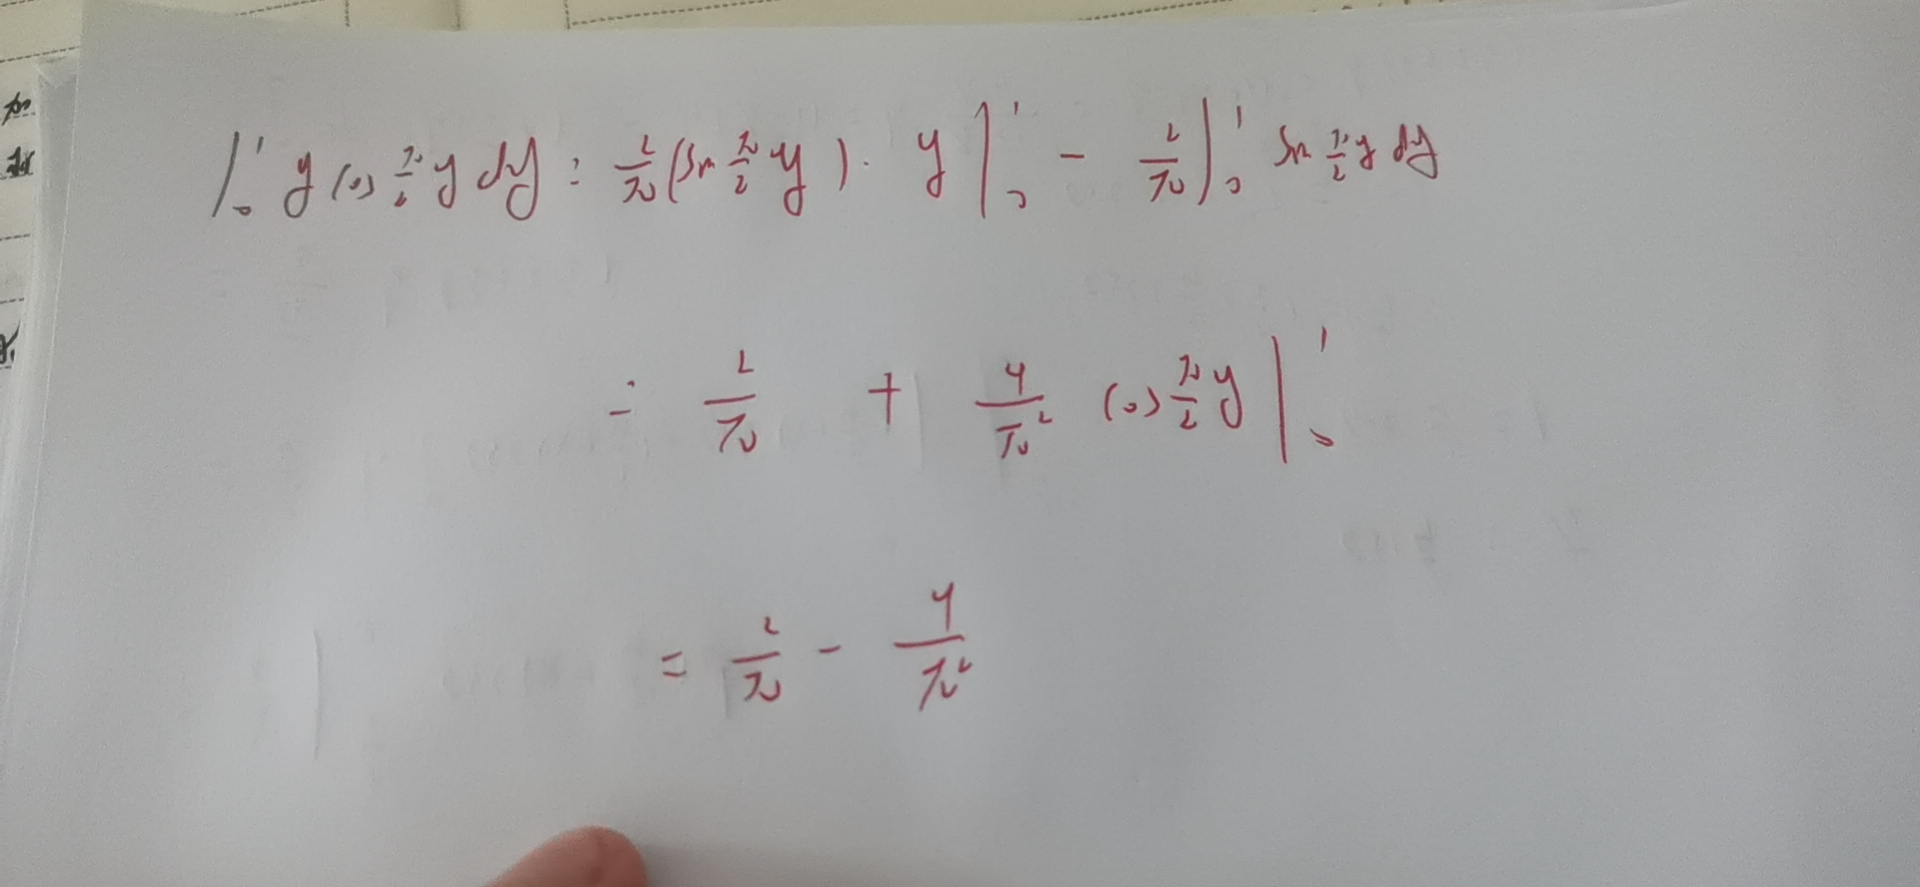 ∫₀¹ y cos π/2 y dy = 2/π (sin π/2 y) · y |₀¹ - 2/π ∫₀¹ sin π/2 y dy
= 2/π + 4/π² cos π/2 y |₀¹
= 2/π - 4/π²